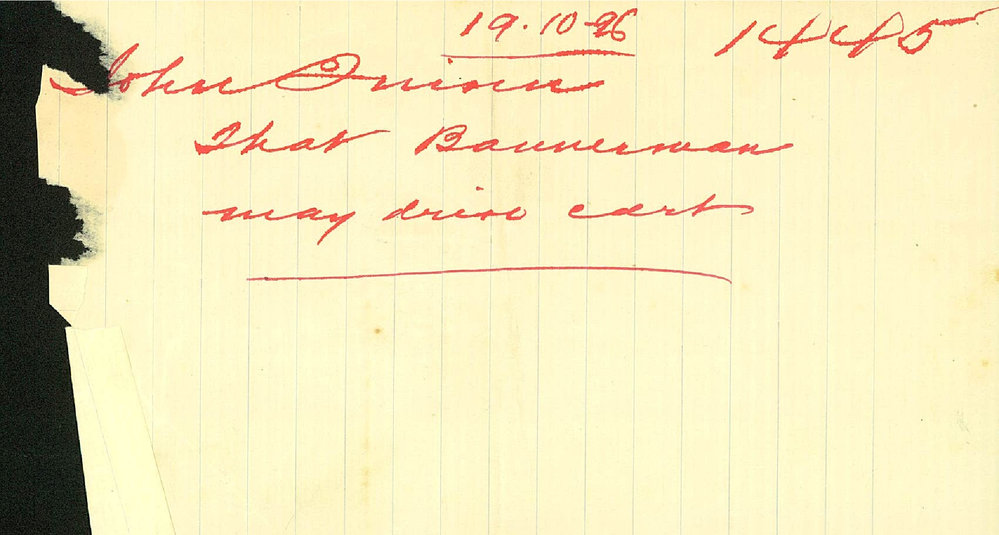 19·10-96
1445
John
That Bannerman
may drive cart